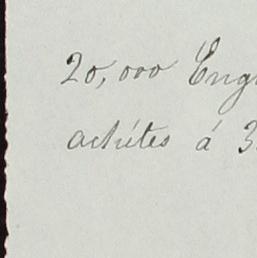 20,000 Eng
achétes á 3